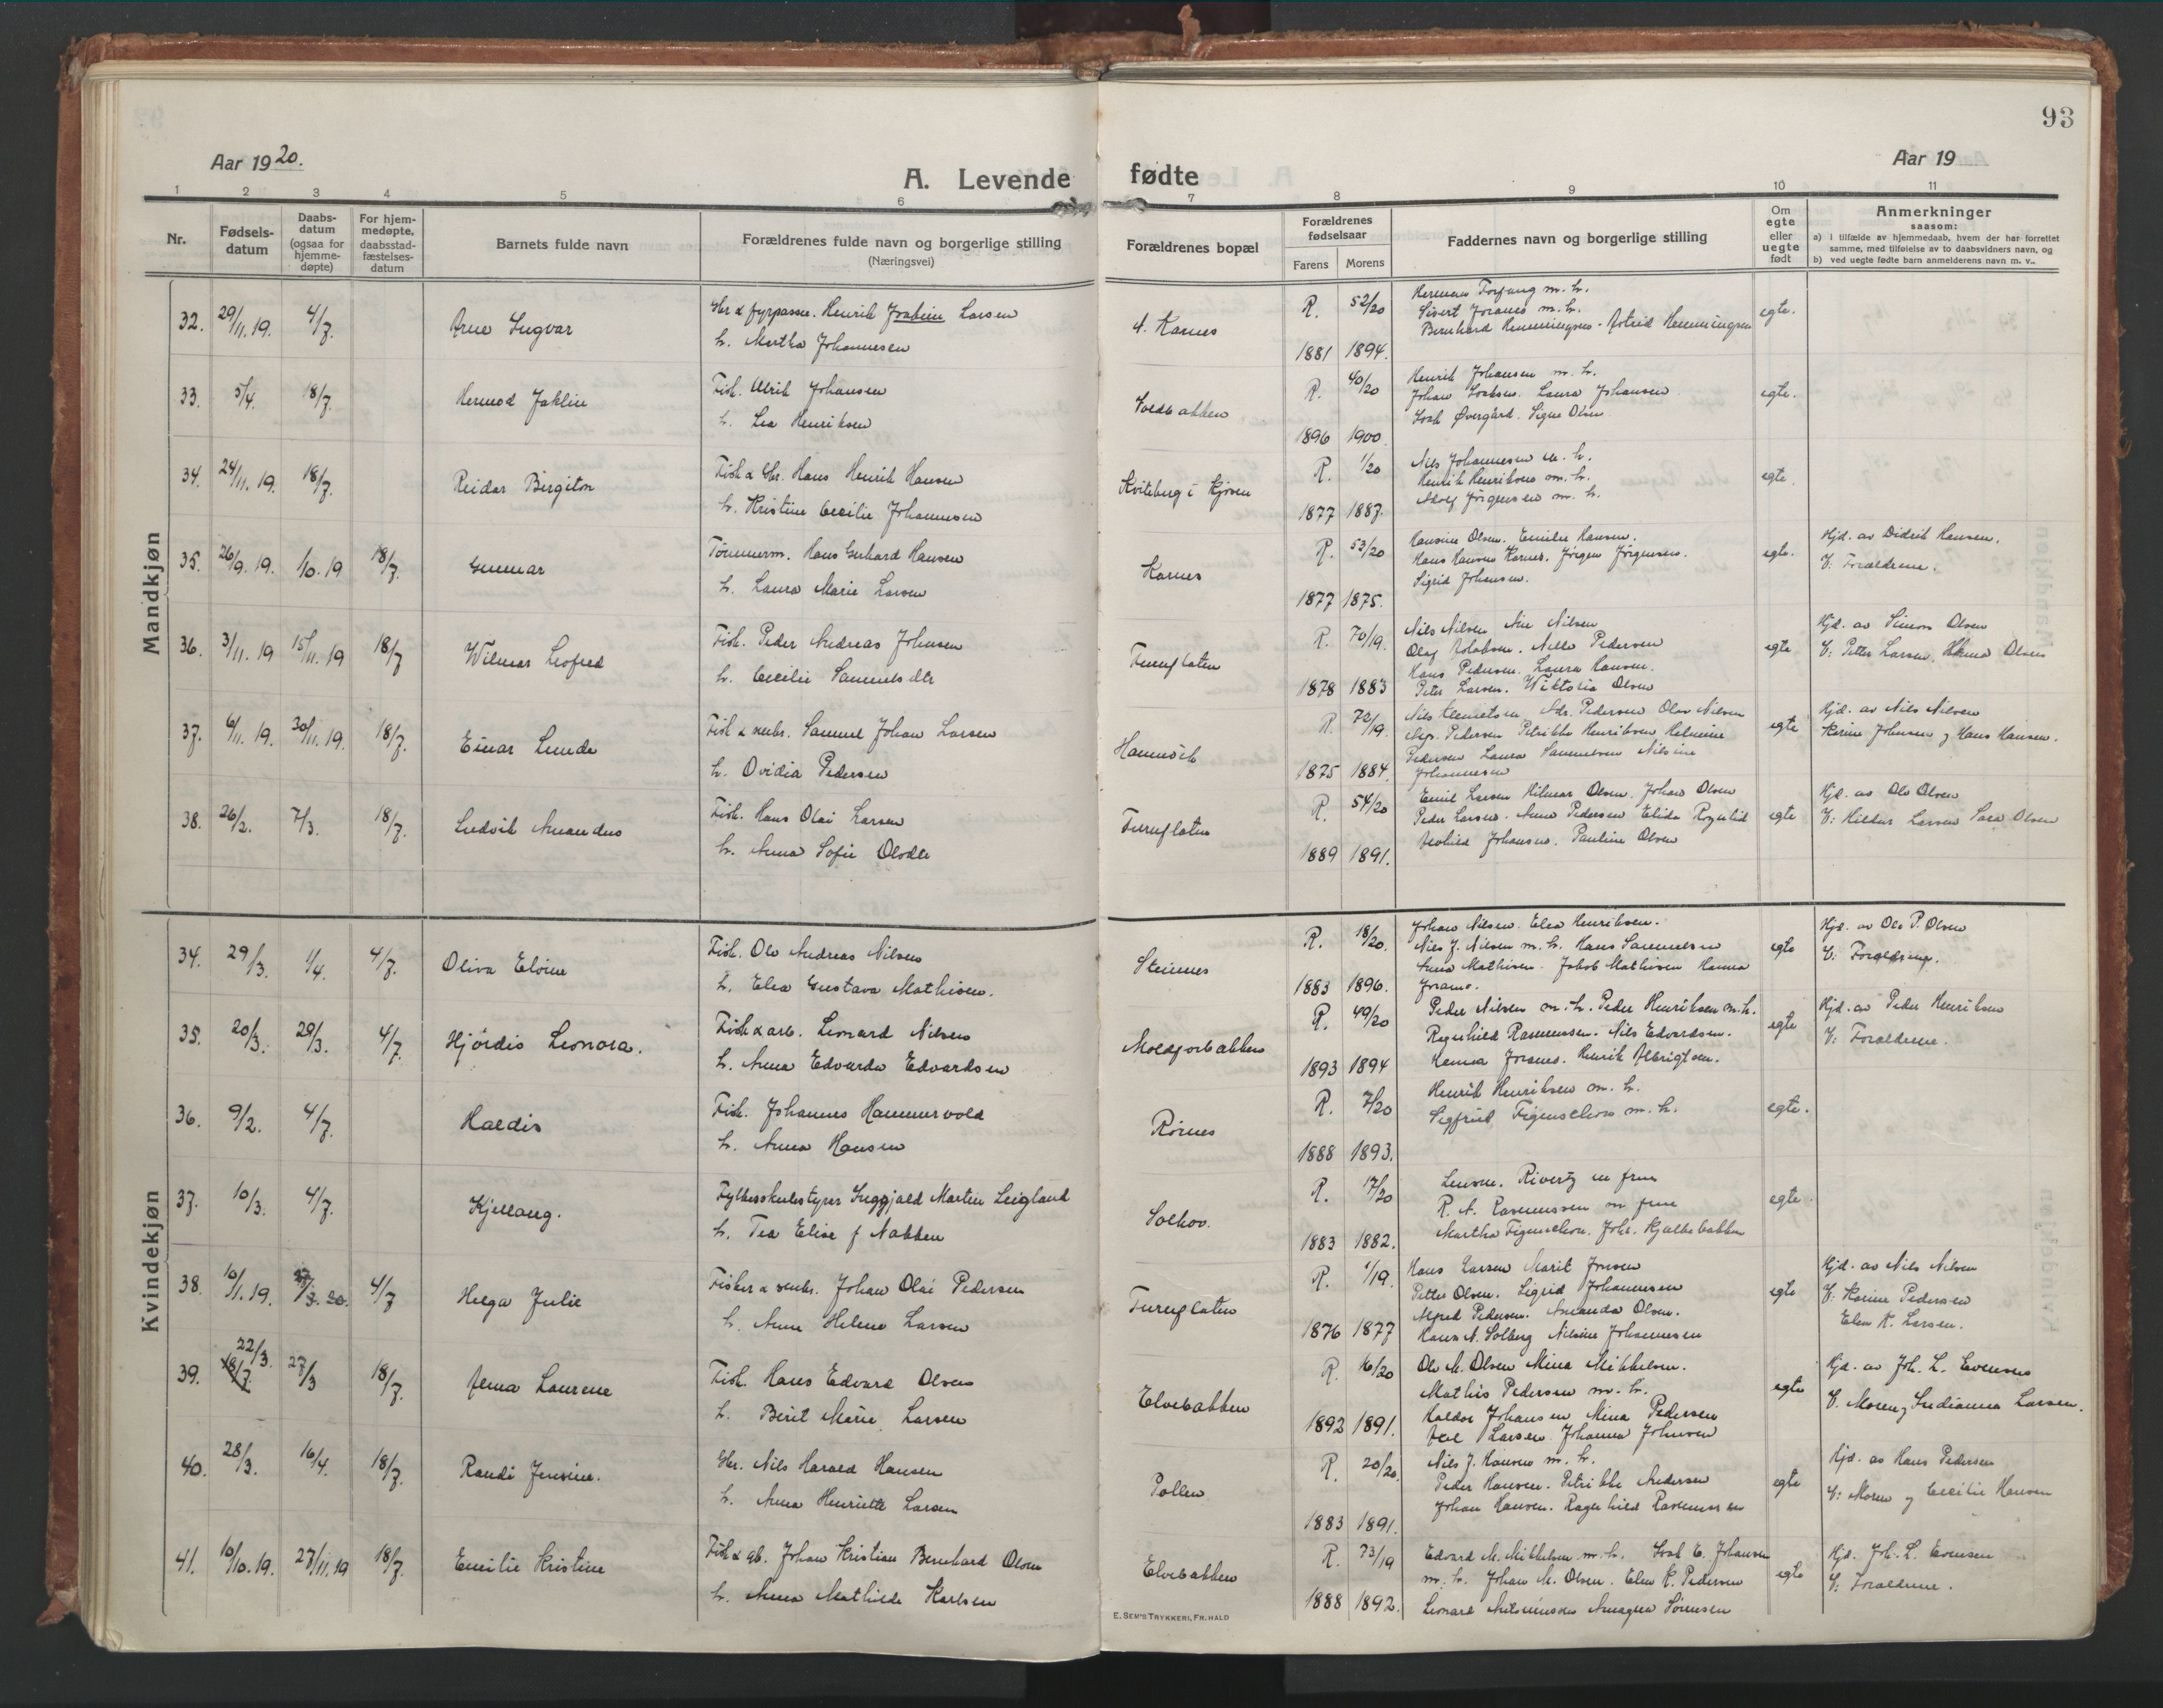 93
Aar 1920.
A. Levende fødte
Aar 19
1 2 3 4 5 6 7 8 9 10 11
Nr.
Fødsels-
datum
Daabs-
datum
(ogsaa for
hjemme-
døpte)
For hjem-
medøpte,
daabsstad-
fæstelses-
datum
Barnets fulde navn
Forældrenes fulde navn og borgerlige stilling
(Næringsvei)
Forældrenes bopæl
Forældrenes
fødselsaar
Farens Morens
Faddernes navn og borgerlige stilling
Om
egte
eller
uegte
født
Anmerkninger
saasom:
a) i tilfælde av hjemmedaab, hvem der har forrettet
samme, med tilføielse av to daabsvidners navn, og
b) ved uegte fødte barn anmelderens navn m. v..
Mandkjøn
32. 29/11. 19. 4/7. Arne Ingvar
Gbr & fyrpasser. Henrik Joakim Larsen
h. Martha Johannesen
Karnes
R. 52/20
1881 1894.
m. h.
Sivert Joramo m. h.
Bernhard Henningsen. Astrid Henningsen
egte.
33. 5/4. 18/7. Hermod Jaklin
Fisk. Ulrik Johansen
h. Lea Henriksen
R. 40/20
1896 1900.
Henrik Johansen m. h.
Johan Isaksen. Laura Johansen
Isak Øvergård. Signe Olsen
egte.
34. 24/11. 19. 18/7. Reidar Birgiton
Fisk & Gbr. Hans Henrik Hansen
h. Kristine Cecilie Johannesen
Kviteberg i Kjosen
R. 1/20
1877 1887.
Nils Johannesen m. h.
Henrik Henriksen m. h.
Adolf Jörgensen m. h.
egte.
35. 26/9. 19. 1/10. 19 18/7. Gunnar
Tömmerm. Hans Gerhard Hansen
h. Laura Marie Larsen
Karnes
R. 53/20
1877 1875.
Hansine Olsen. Emilie Hansen.
Hans Hansen Karnes. Jörgen Jörgensen.
Sigrid Johansen.
egte.
Hjd. av Didrik Hansen.
V: Forældrene.
36. 3/11. 19 15/11. 19 18/7 Wilmar Leofred
Fisk. Peder Andreas Johnsen
h. Cecilie Samuelsdtr
Furuflaten
R. 70/19.
1878 1883
Nils Nilsen Nilsen
Olaf Pedersen
Hans Pedersen. Laura Hansen.
Peter Larsen. Wiktoria Olsen
egte
Hjd. av Simon Olsen
V: Petter Larsen, Olsen
37. 6/11. 19. 30/11. 19. 18/7. Einar Lunde
Fisk & snekr. Samuel Johan Larsen
h. Ovidia Pedersen
Hamnvik
R. 72/19.
1875 1884.
Nils Klemetsen, Adr. Pedersen Olav Nilsen
Pedersen Petrikke Henriksen Helmine
Pedersen Laura Samuelsen Nilsine
Johannesen
egte
Hjd. av Nils Nilsen
Karine Johnsen og Hans Hansen.
38. 26/2. 7/3. 18/7. Ludvik Amandus
Fisk. Hans Olai Larsen
h. Anna Sofie Olsdtr
Furuflaten
R. 54/20
1889 1891.
Emil Larsen Hilmar Olsen. Johan Olsen
Peder Larsen. Anna Pedersen Elida Rognlid
Johansen. Pauline Olsen
egte
Hjd. av Ole Olsen
V: Hildur Larsen Sara Olsen
Kvindekjøn
34. 29/3. 1/4. 4/7. Oliva Eloine
Fisk. Ole Andreas Nilsen
h. Elea Gustava Mathisen.
Steinnes
R. 18/20.
1883 1896.
Johan Nilsen. Elea Henriksen.
Nils J. Nilsen m. h. Hans Samuelsen
Anna Mathisen. Jakob Mathisen Hanna
Joramo.
egte
Hjd. av Ole P. Olsen
V: Forældrene.
35. 20/3. 29/3. 4/7. Hjördis Leonora.
Fisk & arb. Leonard Nilsen
h. Anna Edvarda Edvardsen
R. 49/20
1893 1894
Peder Nilsen m. h. Peder Henriksen m. h.
Ragnhild Rasmussen. Nils Edvardsen.
Hanna Joramo. Henrik Albrigtsen.
egte
Hjd. av Peder Henriksen
V: Forældrene.
36. 9/2. 4/7. Haldis
Fisk. Johannes Hammervold
h. Anna Hansen
Rörnes
R. 7/20
1888 1893.
Henrik Henriksen m. h.
Sigfrid Figenschou m. h.
egte.
37. 10/3. 4/7. Kjellaug.
Fylkesskulestyrer Inggjald Martin Leigland
h. Tea Elise f Nakken
Solhov.
R. 17/20
1883 1882.
Rivertz m frue
R. A. Rasmussen m frue
Martha Figenschou. Johs. Kjelbakken
egte.
38. 10/11. 19. 4/7 Helga Julie
Fisker & snekr. Johan Olai Pedersen
h. Anne Helene Larsen
Furuflaten
R. 1/19.
1876 1877
Hans Larsen Marit Jensen
Petter Olsen. Sigrid Johannesen
Alfred Pedersen. Amanda Olsen.
Hans N. Solberg Nilsine Johannesen
egte
Hjd. av Nils Nilsen
V: Karine Pedersen
Elen K. Larsen.
39. 22/3. 18/7. 27/3 18/7. Anna Laurene
Fisk. Hans Edvard Olsen
h. Berit Marie Larsen
Elvebakken
R. 16/20
1892 1891.
Ole M. Olsen Mina Mikkelsen.
Mathis Pedersen m. h.
Haldor Johansen Mina Pedersen
Larsen Johanna Johnsen
egte
Hjd. av Joh. L. Evensen
V. Moren og Indianna Larsen.
40. 28/3. 16/4. 18/7. Randi Jensine.
Gbr. Nils Harald Hansen
h. Anna Henriette Larsen
Pollen
R. 20/20.
1883 1891.
Nils J. Hansen m. h.
Peder Hansen. Petrikke Andersen
Johan Hansen. Ragnhild Rasmussen
egte
Hjd. av Hans Pedersen
V: Moren og Cecilie Hansen
41. 10/10. 19. 27/11. 19 18/7. Emilie Kristine
Fisk & gb. Johan Kristian Bernhard Olsen
h. Anna Mathilde Karlsen
Elvebakken
R. 73/19
1888 1892.
Edvard M. Mikkelsen m. h. Isak E. Johansen
m. h. Johan M. Olsen. Elen K. Pedersen
Leonard Antonisen Amagna Sörensen
egte
Hjd. Joh. L. Evensen
V: Forældrene.
E. SEM'S TRYKKERI, FR. HALD